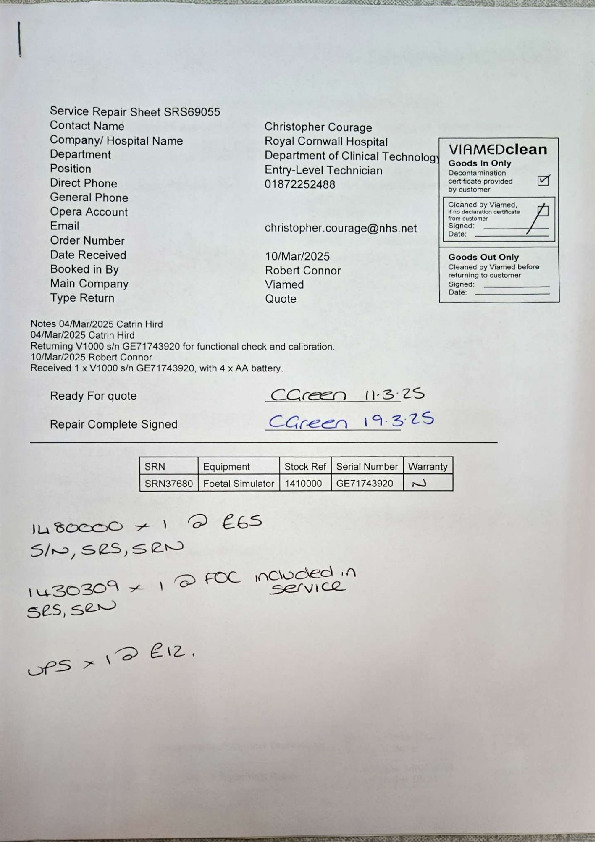 Service Repair Sheet SRS69055
Contact Name Christopher Courage
Company/ Hospital Name Royal Cornwall Hospital
Department Department of Clinical Technology
Position Entry-Level Technician
Direct Phone 01872252488
General Phone
Opera Account
Email christopher.courage@nhs.net
Order Number
Date Received 10/Mar/2025
Booked in By Robert Connor
Main Company Viamed
Type Return Quote
VIAMEDclean
Goods In Only
Decontamination
certificate provided
by customer
Cleaned by Viamed,
if no declaration certificate
from customer
Signed:
Date:
Goods Out Only
Cleaned by Viamed before
returning to customer
Signed:
Date:
Notes 04/Mar/2025 Catrin Hird
04/Mar/2025 Catrin Hird
Returning V1000 s/n GE71743920 for functional check and calibration.
10/Mar/2025 Robert Connor
Received 1 x V1000 s/n GE71743920, with 4 x AA battery.
Ready For quote CGreen 11.3.25
Repair Complete Signed CGreen 19.3.25
SRN Equipment Stock Ref Serial Number Warranty
SRN37680 Foetal Simulator 1410000 GE71743920 N
1480000 x 1 @ £65
S/N, SRS, SRN
1430309 x 1 @ FOC included in
service
SRS, SRN
UPS x 1 @ £12.